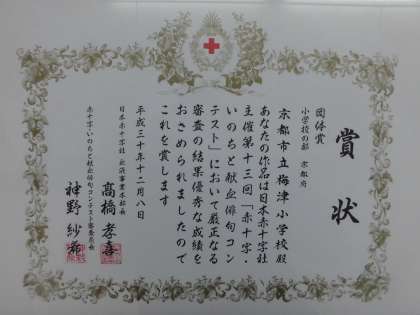 賞状
団体賞
小学校の部 京都府
京都市立梅津小学校殿
あなたの作品は日本赤十字社
主催第十三回「赤十字・
いのちと献血俳句コン
テスト」において厳正なる
審査の結果優秀な成績を
おさめられましたので
これを賞します
平成三十年十二月八日
日本赤十字社 血液事業本部長
高橋孝喜
赤十字・いのちと献血俳句コンテスト審査員長
神野紗希